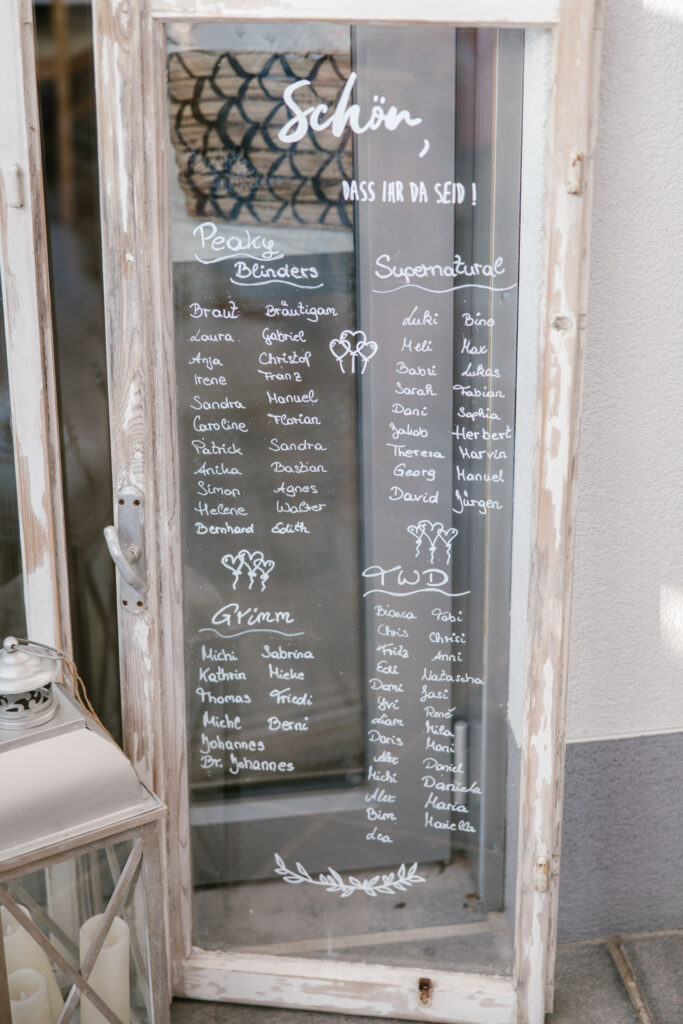 Schön,
DASS IHR DA SEID!
Peaky
Blinders
Braut Bräutigam
Laura Gabriel
Anja Christof
Irene Franz
Sandra Manuel
Caroline Florian
Patrick Sandra
Anika Bastian
Simon Agnes
Helene Walter
Bernhard Edith
Supernatural
Luki Bine
Meli Max
Babsi Lukas
Sarah Fabian
Dani Sophia
Jakob Herbert
Theresa Marvin
Georg Manuel
David Jürgen
Grimm
Michi Sabrina
Kathrin Mieke
Thomas Friedi
Michl Berni
Johannes
Br. Johannes
TWD
Bianca Tobi
Chris Chrisi
Fritz Anni
Edi Natascha
Domi Jasi
Yvi René
Liam Mila
Doris Moni
Alex Daniel
Michi Daniela
Alex Maria
Bim Mariella
Lea